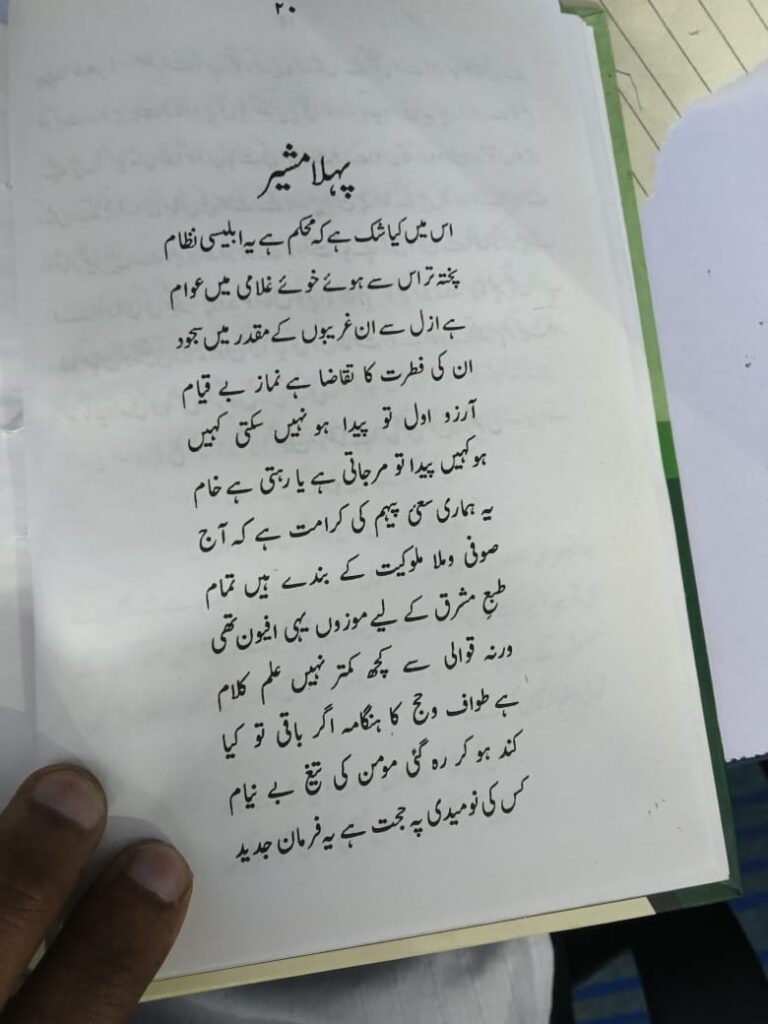 ۲۰
پہلا مشیر
اس میں کیا شک ہے کہ محکم ہے یہ ابلیسی نظام
پختہ تر اس سے ہوئے خوئے غلامی میں عوام
ہے ازل سے ان غریبوں کے مقدر میں سجود
ان کی فطرت کا تقاضا ہے نماز بے قیام
آرزو اول تو پیدا ہو نہیں سکتی کہیں
ہو کہیں پیدا تو مرجاتی ہے یا رہتی ہے خام
یہ ہماری سعئ پیہم کی کرامت ہے کہ آج
صوفی وملا ملوکیت کے بندے ہیں تمام
طبعِ مشرق کے لیے موزوں یہی افیون تھی
ورنہ قوالی سے کچھ کمتر نہیں علم کلام
ہے طواف وحج کا ہنگامہ اگر باقی تو کیا
کند ہو کر رہ گئی مومن کی تیغ بے نیام
کس کی نومیدی پہ حجت ہے یہ فرمان جدید